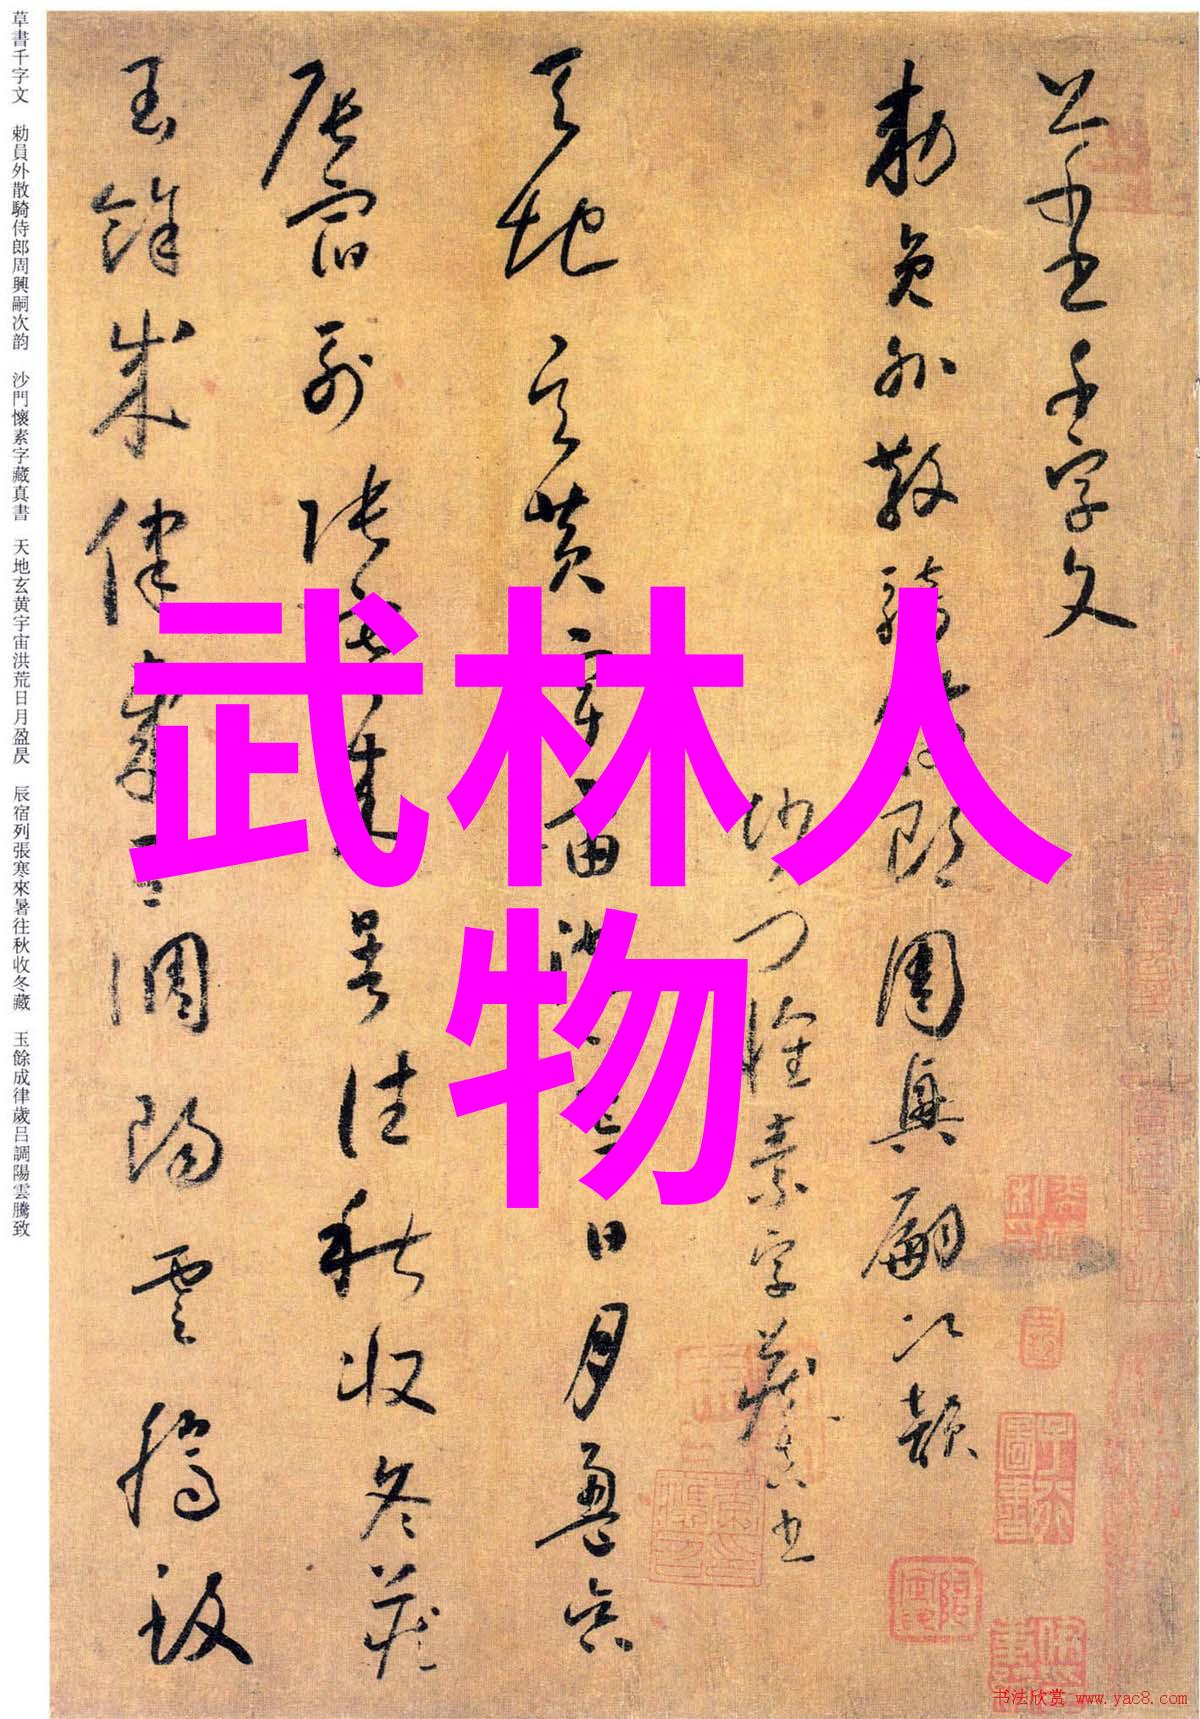 草書千字文
勅員外散騎侍郎周興嗣次韵
沙門懷素字藏真書
天地玄黄宇宙洪荒日月盈昃
辰宿列張寒來暑往秋收冬藏
玉餘成律歲吕調陽雲騰致
草書千字文
勅員外散騎侍郎周興嗣次韻
沙門懷素字藏真書
天地玄黄宇宙洪荒日月盈昃
辰宿列張寒來暑往秋收冬藏
玉餘成律歲吕調陽雲騰致
武林人
物
书法欣赏 www.yac8.com